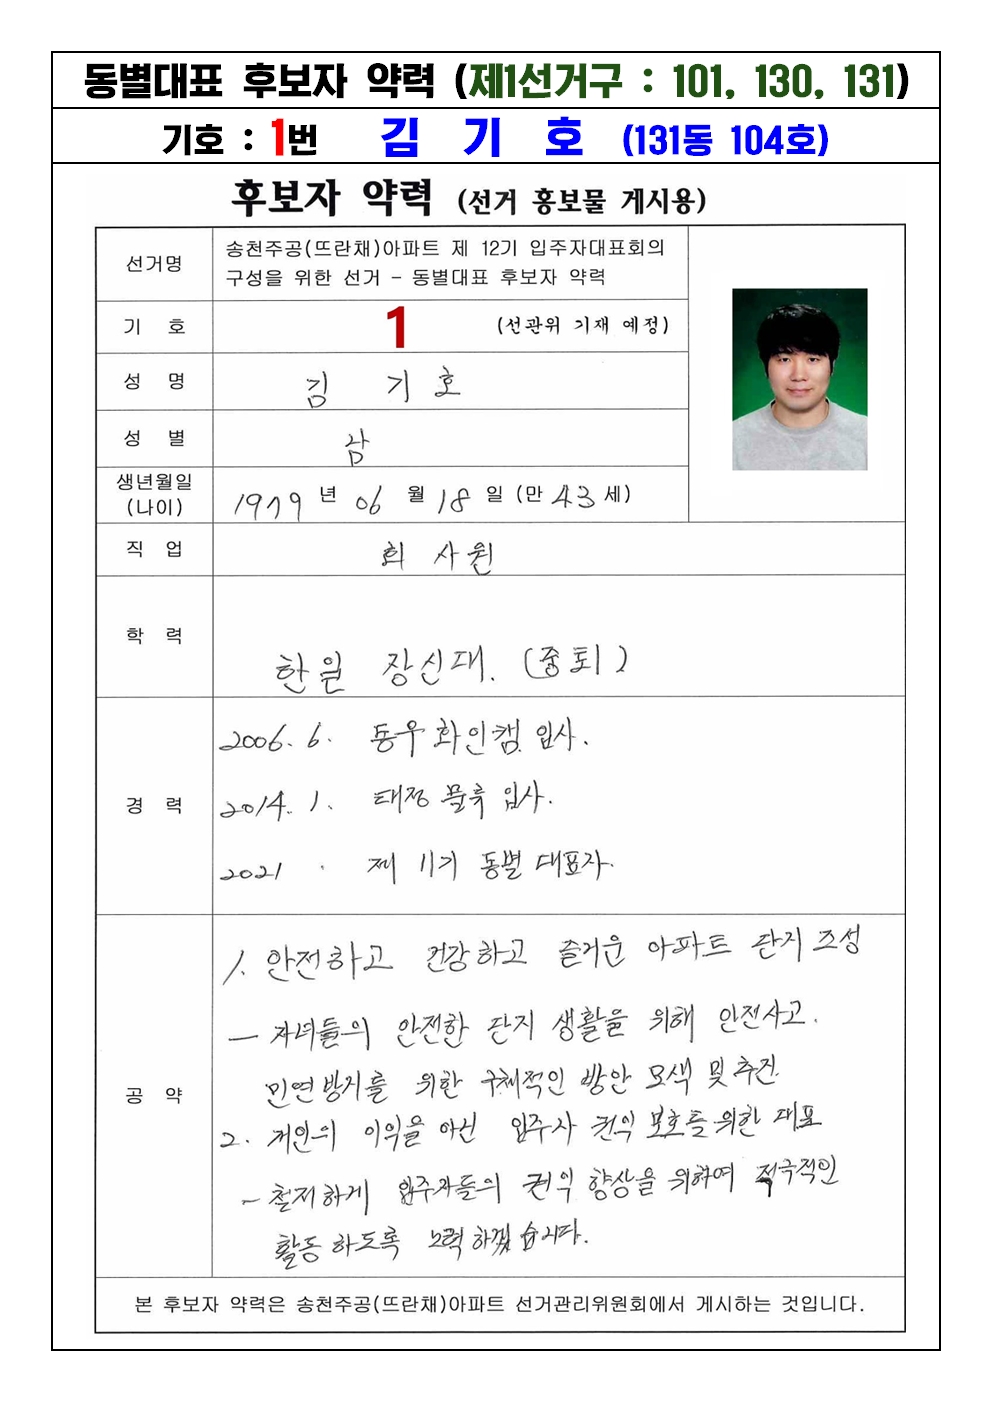 동별대표 후보자 약력 (제1선거구 : 101, 130, 131)
기호 : 1번 김 기 호 (131동 104호)
후보자 약력 (선거 홍보물 게시용)
선거명
송천주공(뜨란채)아파트 제 12기 입주자대표회의
구성을 위한 선거 – 동별대표 후보자 약력
기 호
1 (선관위 기재 예정)
성 명
김 기 호
성 별
남
생년월일
(나이)
1979 년 06 월 18 일 (만 43 세)
직 업
회 사원
학 력
한일 장신대. (중퇴)
경 력
2006. 6. 동우 화인캠 입사.
2014. 1. 태정 물류 입사.
2021 . 제 11기 동별 대표자.
공 약
1. 안전하고 건강하고 즐거운 아파트 단지 조성
- 자녀들의 안전한 단지 생활을 위해 안전사고.
미연방지를 위한 구체적인 방안 모색 및 추진
2. 개인의 이익을 아닌 입주자 권익 보호를 위한 대표
- 철저하게 입주자들의 권익 향상을 위하여 적극적인
활동 하도록 노력 하겠습니다.
본 후보자 약력은 송천주공(뜨란채)아파트 선거관리위원회에서 게시하는 것입니다.